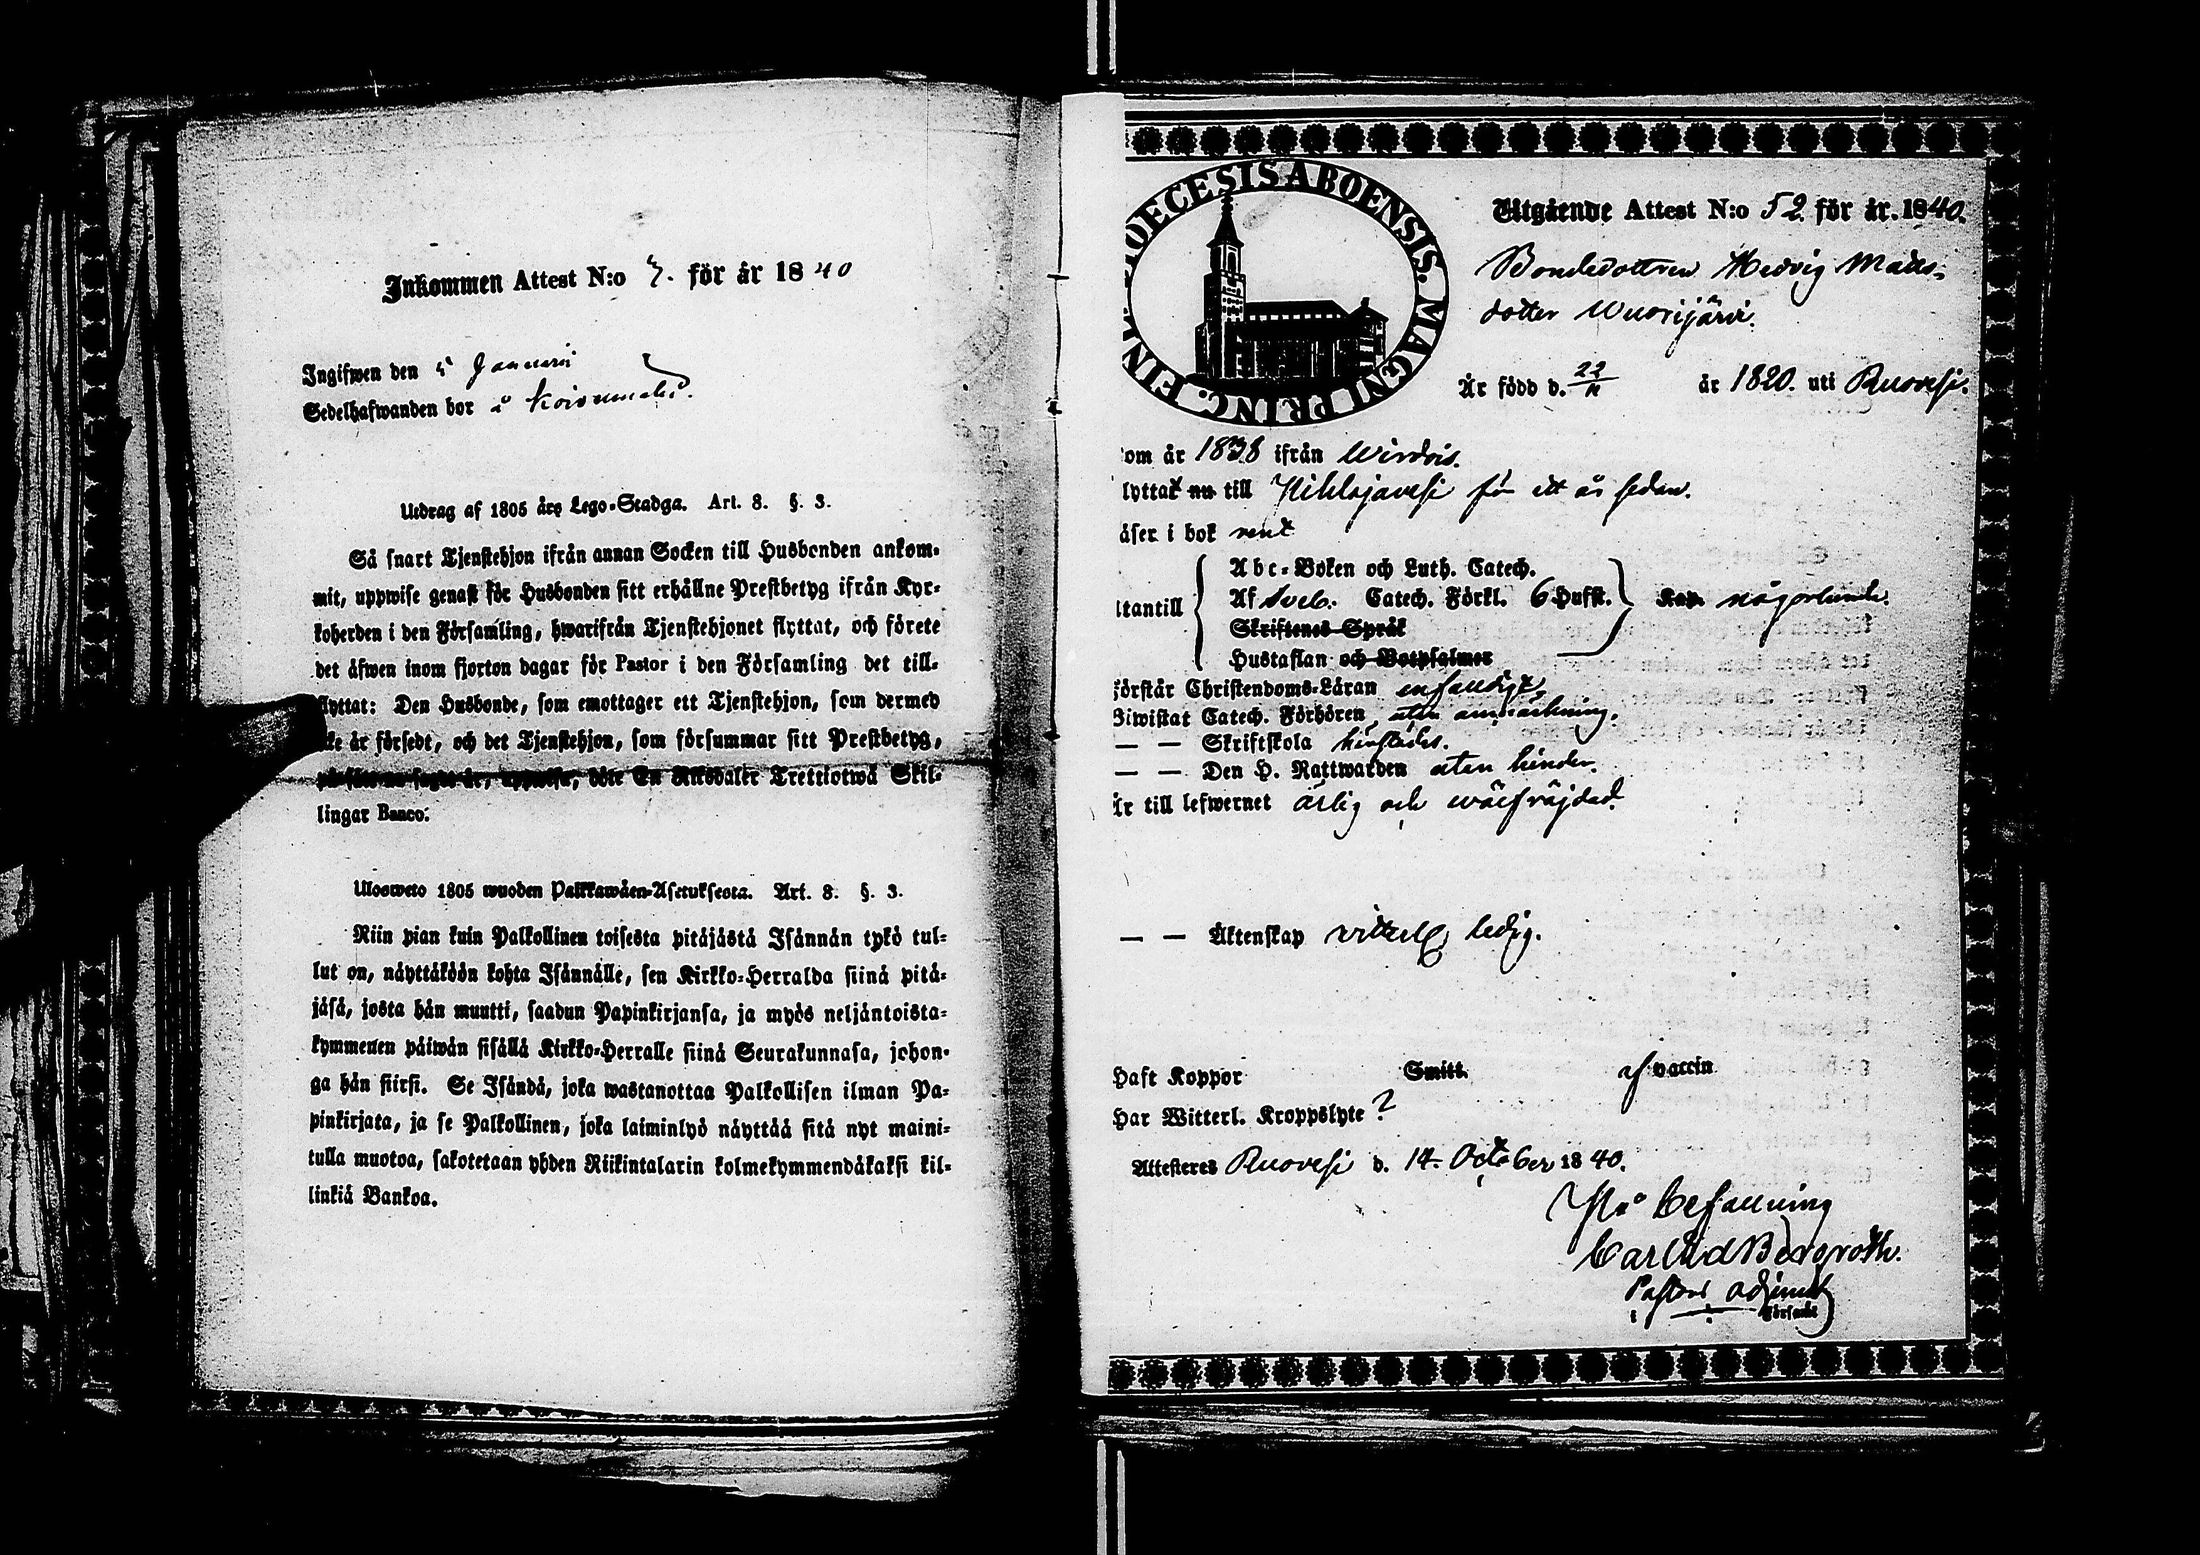 Inkommen Attest N:o 7. för år 1840
Ingifwen den 5 Januarii
Sedelhafwanden bor i
Utdrag af 1805 års Lego-Stadga. Art. 8. §. 3.
Så snart Tjenstehjon ifrån annan Socken till Husbonden ankom-
mit, uppwise genast för Husbonden sitt erhållne Prestbetyg ifrån Kyr-
koherden i den Församling, hwarifrån Tjenstehjonet flyttat, och förete
det äfwen inom fjorton dagar för Pastor i den Församling det till-
flyttat: Den Husbonde, som emottager ett Tjenstehjon, som dermed
icke är försedt, och det Tjenstehjon, som försummar sitt Prestbetyg,
på sätt nu sagdt är, uppwisa, böte En Riksdaler Trettiotwå Skil-
lingar Banco.
Ulosweto 1805 wuoden Palkkawäen-Asetuksesta. Art. 8. §. 3.
Niin pian kuin Palkollinen toisesta pitäjästä Isännän tykö tul-
lut on, näyttäköön kohta Isännälle, sen Kirkko-Herralda siinä pitä-
jäsä, josta hän muutti, saadun Papinkirjansa, ja myös neljäntoista-
kymmenen päiwän sisällä Kirkko-Herralle siinä Seurakunnasa, johon-
ga hän siirsi. Se Isändä, joka wastanottaa Palkollisen ilman Pa-
pinkirjata, ja se Palkollinen, joka laiminlyö näyttää sitä nyt maini-
tulla muotoa, sakotetaan yhden Riikintalarin kolmekymmendäkaksi kil-
linkiä Bankoa.
DIOECESIS ABOENSIS. MAGNI PRINC. FINL.
Utgående Attest N:o 52. för år. 1840.
Bondedottren Hedvig Matts-
dotter Wuorijärvi.
Är född d. 22/11 år 1820. uti Ruovesi.
om år 1838 ifrån Wirdois.
lyttat nu till Pihlajavesi för ett år sedan.
äser i bok rent
Abc-Boken och Luth. Catech.
tantill Af Sveb. Catech. Förkl. 6 Hufst. Kap. någorlunda.
Skriftenes Språk
Hustaflan och Botpsalmer
örstår Christendoms-Läran enfaldigt,
Biwistat Catech. Förhören utan anmärkning.
— — Skriftskola härstädes.
— — Den H. Nattwarden utan hinder.
Är till lefwernet ärlig och wälfräjdad.
— — Äktenskap ledig.
Haft Koppor Smitt. af vaccin
Har Witterl. Kroppslyte ?
Attesteres Ruovesi d. 14. October 1840.
På befallning
Carl Bergroth.
Pastors adjunct
i Församl